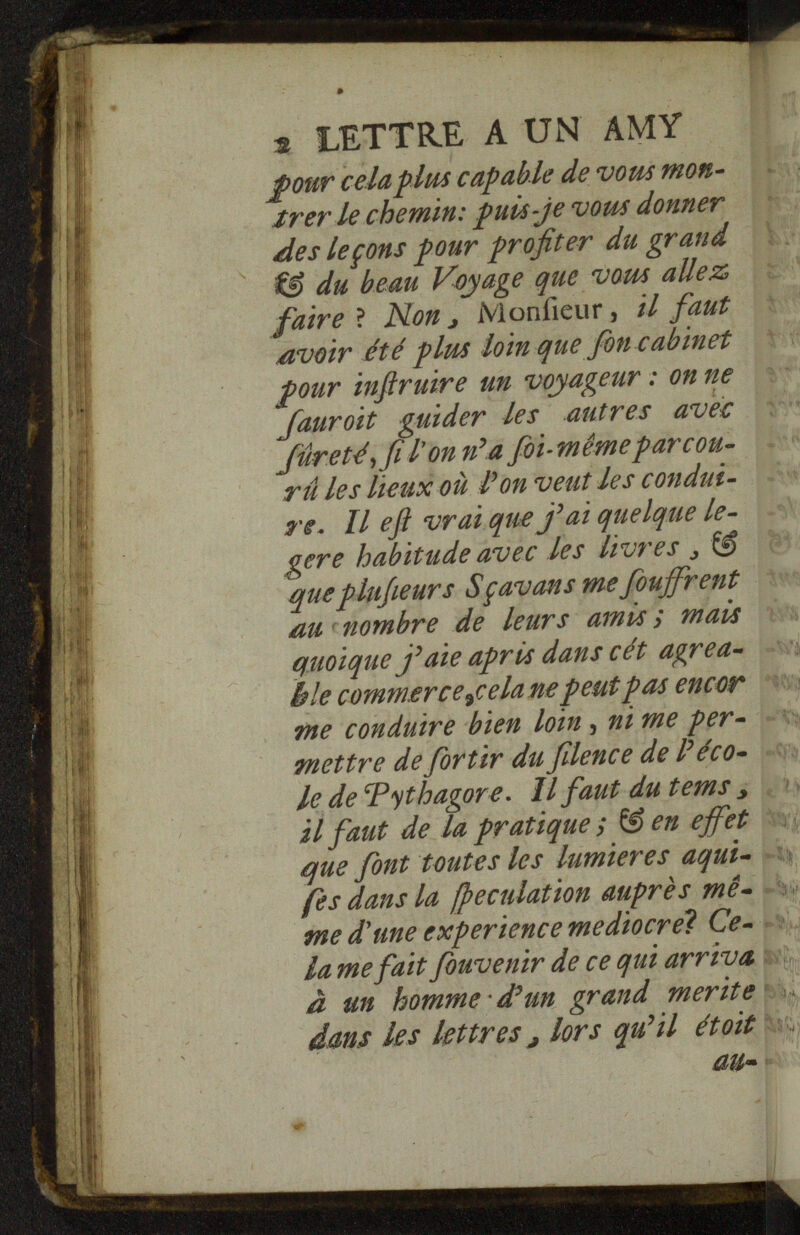 2 LETTRE A UN AMY
pour cela plus capable de vous mon-
trer le chemin: puis-je vous donner
des leçons pour profiter du grand
& du beau Voyage que vous allez
faire ? Non, Monſieur, il faut
avoir été plus loin que ſon cabinet
pour inſtruire un voyageur : on ne
ſauroit guider les autres avec
ſûreté, ſi l'on n'a ſoi-même parcou-
rû les lieux où l'on veut les condui-
re. Il eſt vrai que j'ai quelque le-
gere habitude avec les livres, &
que pluſieurs Sçavans me ſouffrent
au nombre de leurs amis; mais
quoique j'aie apris dans cét agrea-
ble commerce, cela ne peut pas encor
me conduire bien loin, ni me per-
mettre de ſortir du ſilence de l'éco-
le de Pythagore. Il faut du tems,
il faut de la pratique; & en effet
que ſont toutes les lumieres aqui-
ſes dans la ſpeculation auprès mê-
me d'une experience mediocre? Ce-
la me fait ſouvenir de ce qui arriva
à un homme d'un grand merite
dans les lettres, lors qu'il étoit
au-